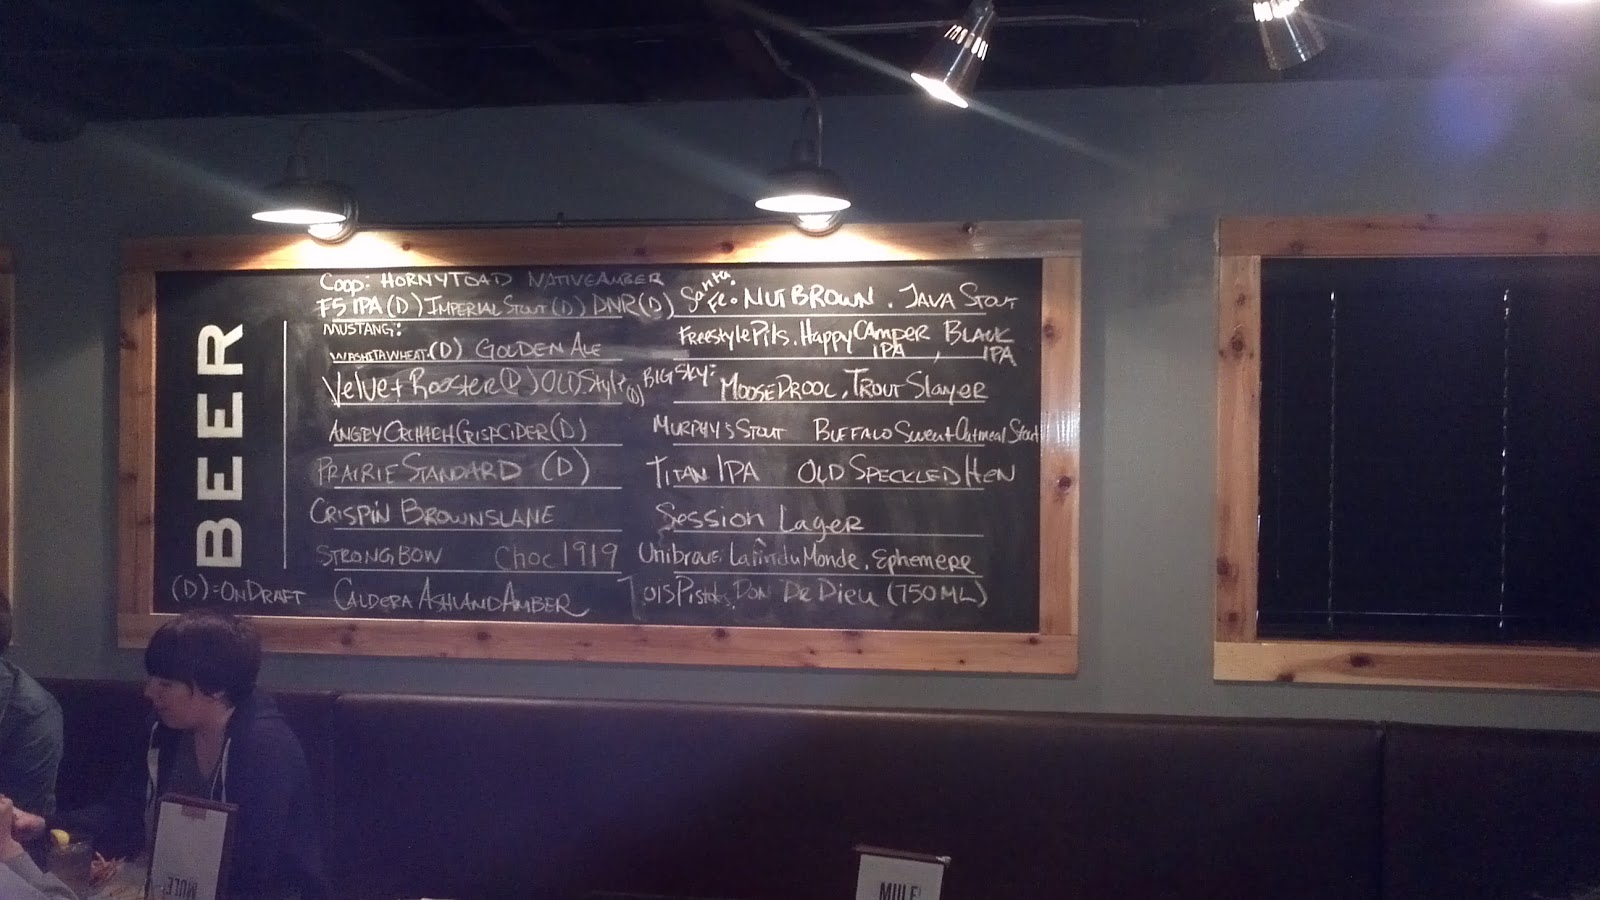 BEER
Coop: HORNYTOAD NATIVE AMBER
F5 IPA (D) IMPERIAL STOUT (D) DNR (D)
MUSTANG:
WASHITA WHEAT (D) GOLDEN ALE
Velvet Rooster (D) OLD Style (D)
ANGRY ORCHARD CRISP CIDER (D)
PRAIRIE STANDARD (D)
CRISPIN BROWNSLANE
STRONGBOW Choc 1919
(D)=ON DRAFT CALDERA ASHLAND AMBER
Santa Fe: NUT BROWN. JAVA Stout
Freestyle Pils. Happy CAmper IPA, BLACK IPA
BIG SKY: MOOSE DROOL, TROUT Slayer
MURPHY'S STOUT BUFFALO Sweat Oatmeal Stout
TITAN IPA OLD SPECKLED HEN
Session Lager
Unibroue: La fin du Monde, Ephemere
DON DE DIEU (750ML)
MULE
MULE